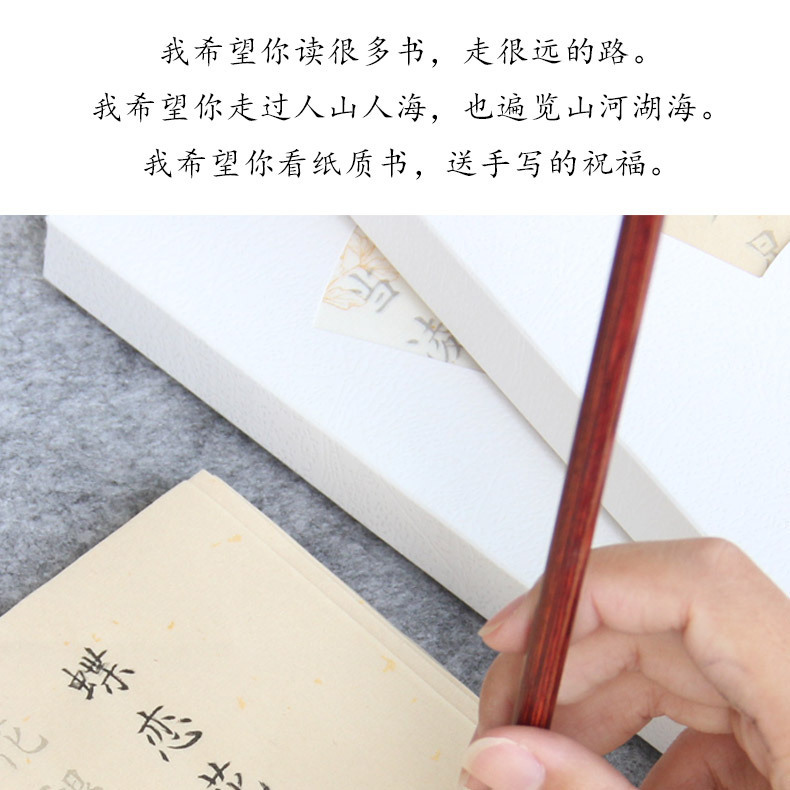 我希望你读很多书，走很远的路。
我希望你走过人山人海，也遍览山河湖海。
我希望你看纸质书，送手写的祝福。
当
凌
蝶恋花